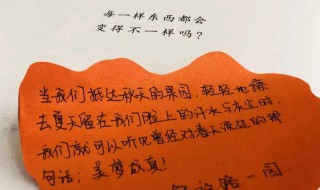 每一样东西都会
变得不一样吗?
当我们抵达秋天的果园,轻轻地擦
去夏天留在我们脸上的汗水与灰尘时,
我们就可以听见曾经对春天说过的那
句话:美梦成真!